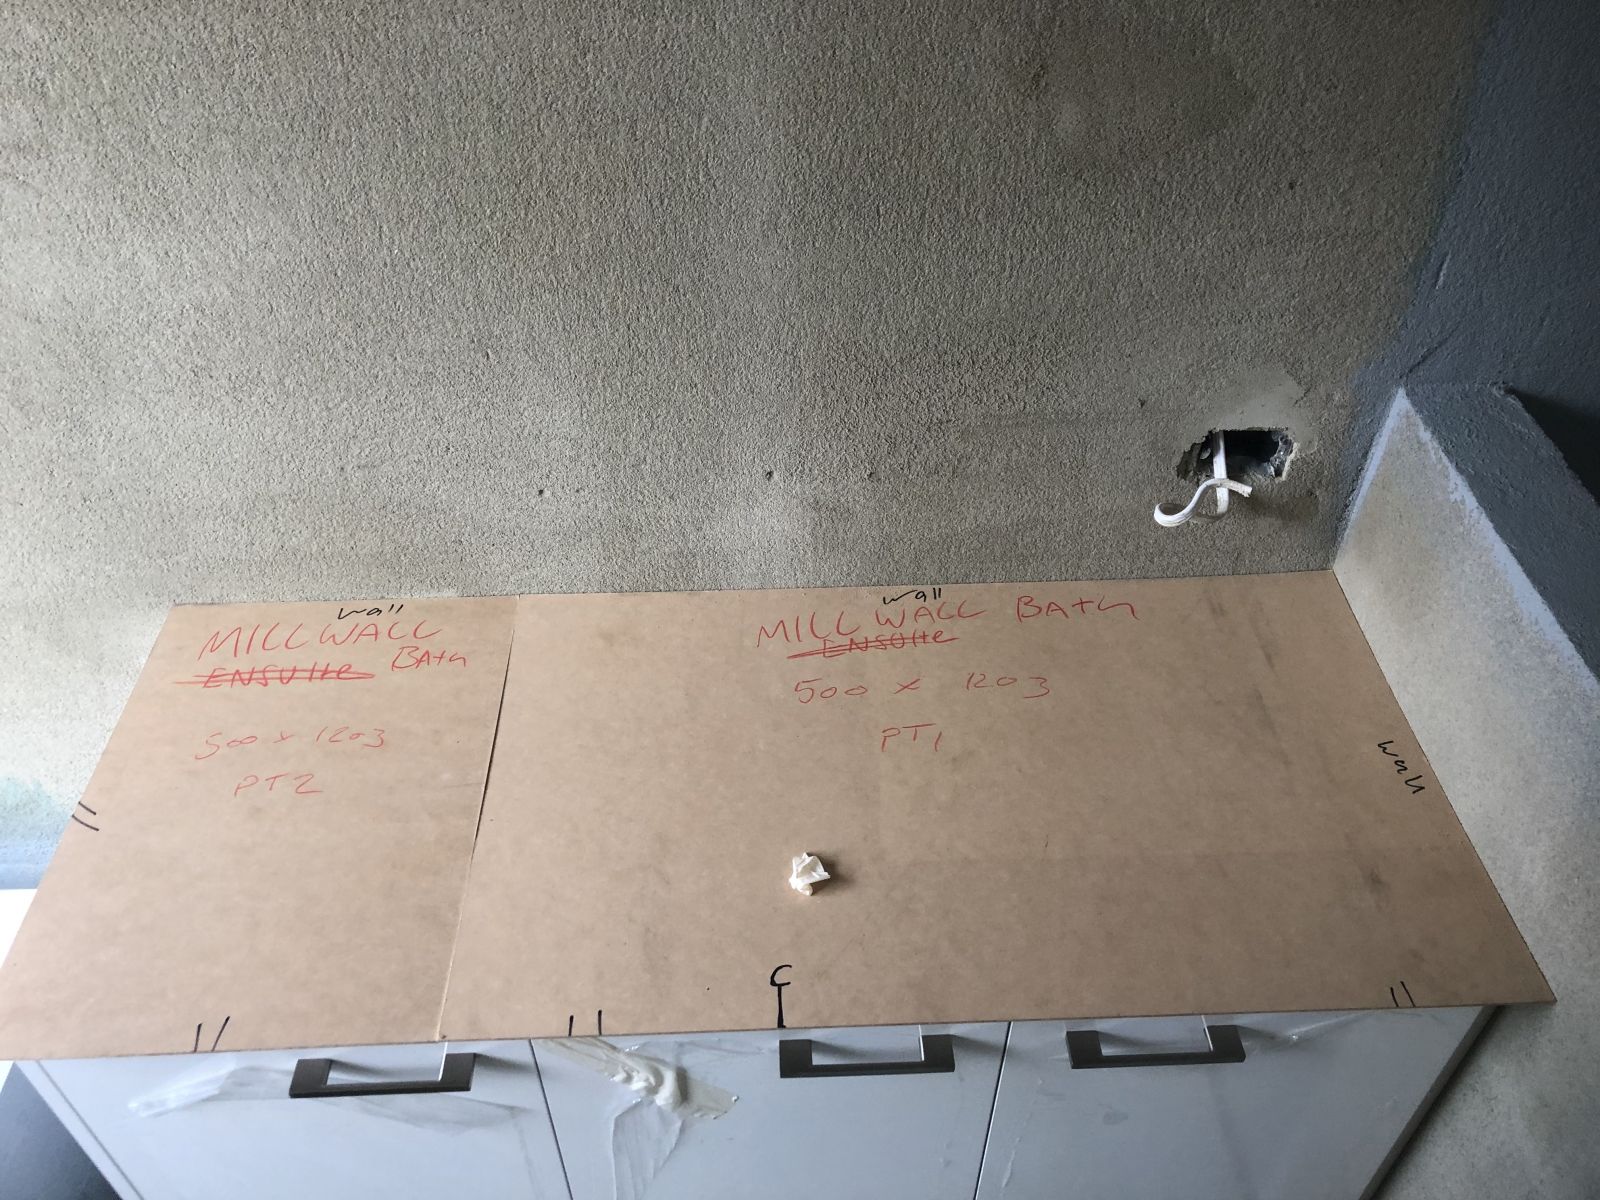 wall
MILLWALL
ENSUITE BAth
500 x 1203
PT2
wall
MILLWALL BAth
ENSUITE
500 x 1203
PT1
wall
C